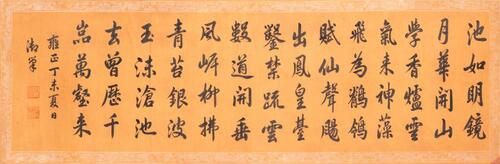 池如明鏡
月華開山
學香爐雲
氣来神藻
飛為鶺鴒
賦仙聲颺
出鳳皇臺
鑿禁疏雲
數道開垂
風岸柳拂
青苔銀波
玉沫滄池
去曾歷千
嵓萬壑来
雍正丁未夏日
御筆